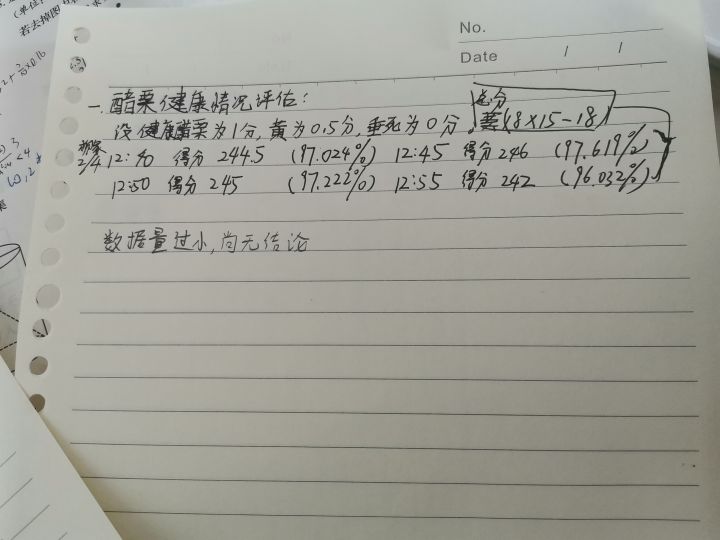 No.
Date / /
一、醋栗健康情况评估：
设健康醋栗为1分，黄为0.5分，垂死为0分。
总分
(18×15-18)
2/4 12:40 得分 244.5 (97.024%) 12:45 得分 246 (97.619%)
12:50 得分 245 (97.222%) 12:55 得分 242 (96.032%)
数据量过小，尚无结论